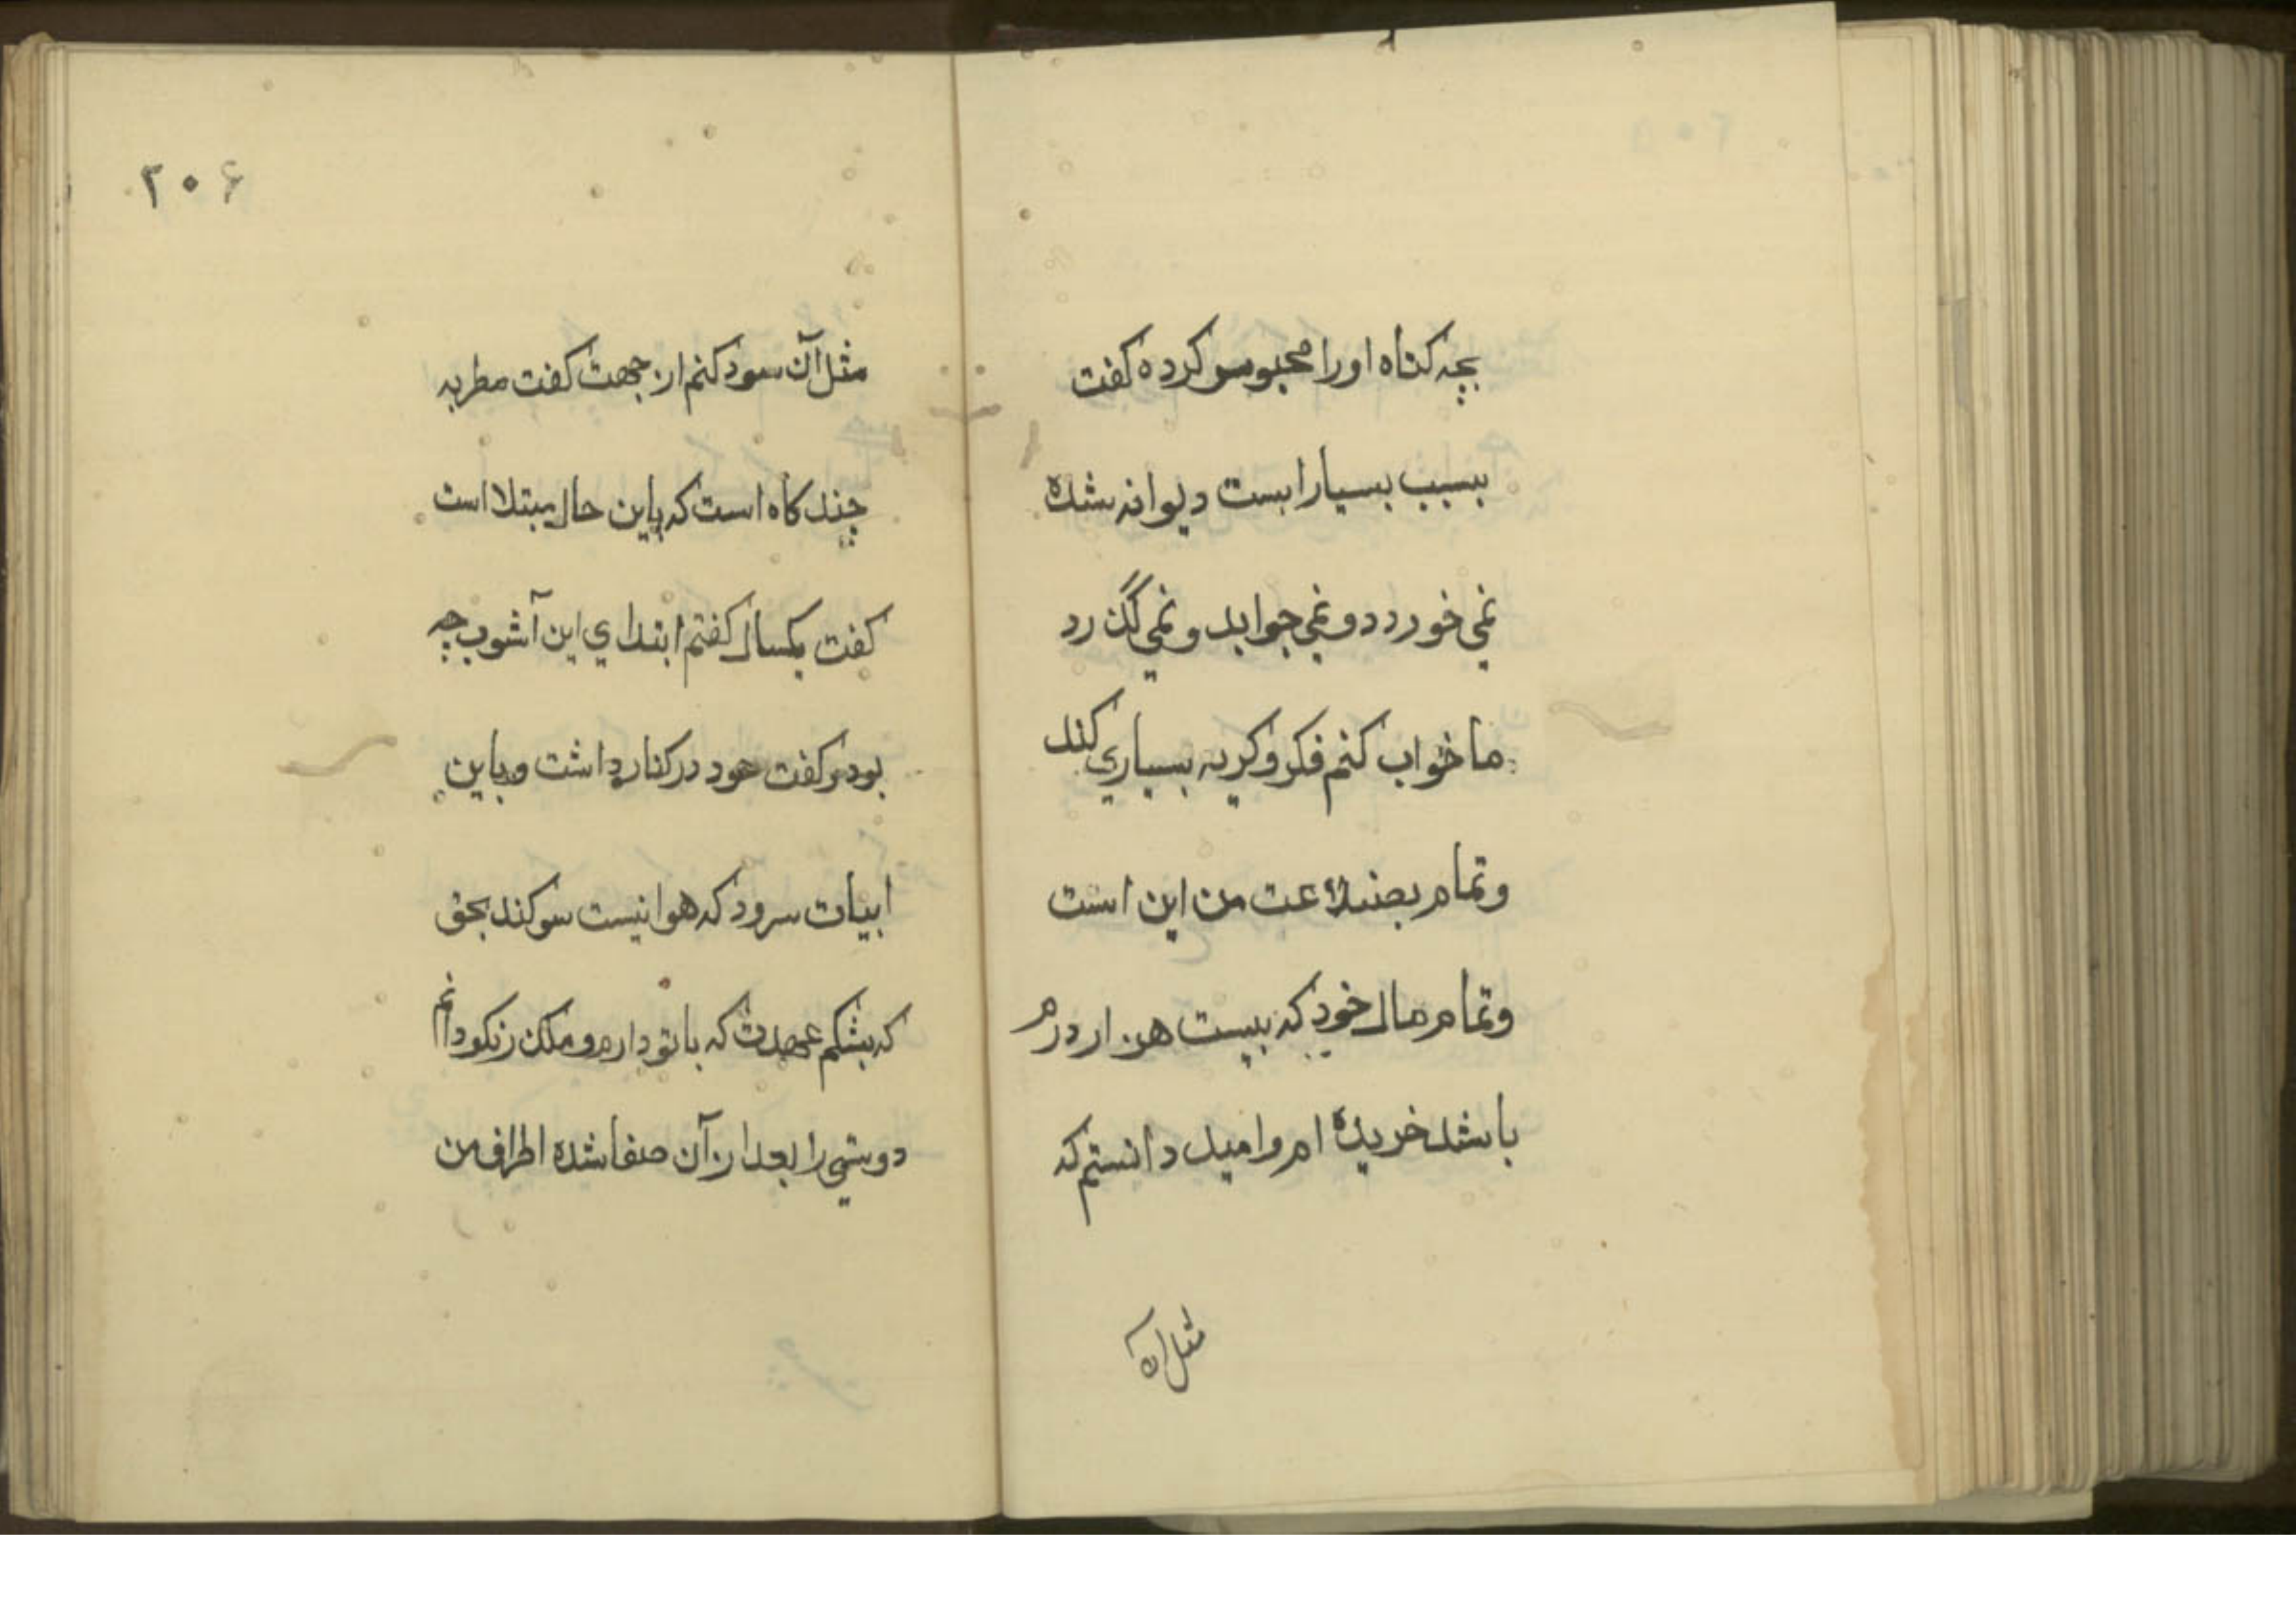 بچه کناه اورا محبوس کرده کفت
بسبب بسیارا بست دیوانه شده
نمی خورد دو نمی جوابد و نمی گذرد
ما خواب کنم فکر و کریه بسیاری کند
وتمام بضاعت من این است
وتمام مال خود که بیست هزار درم
باشد خریده ام وامید دانستم که
مثل آن
۲۰۶
مثل آن سود کنم از جهت کفت مطربه
چند کاه است که باین حال مبتلا است
کفت یکسال کفتم ابتدای این آشوب چه
بود کفت عود در کنار داشت و باین
ابیات سرود که هوا نیست سوکند بحق
که بشکم عهدت که باتو دارم و مکن
دوستی را بعد از آن صفا شده اطراف من